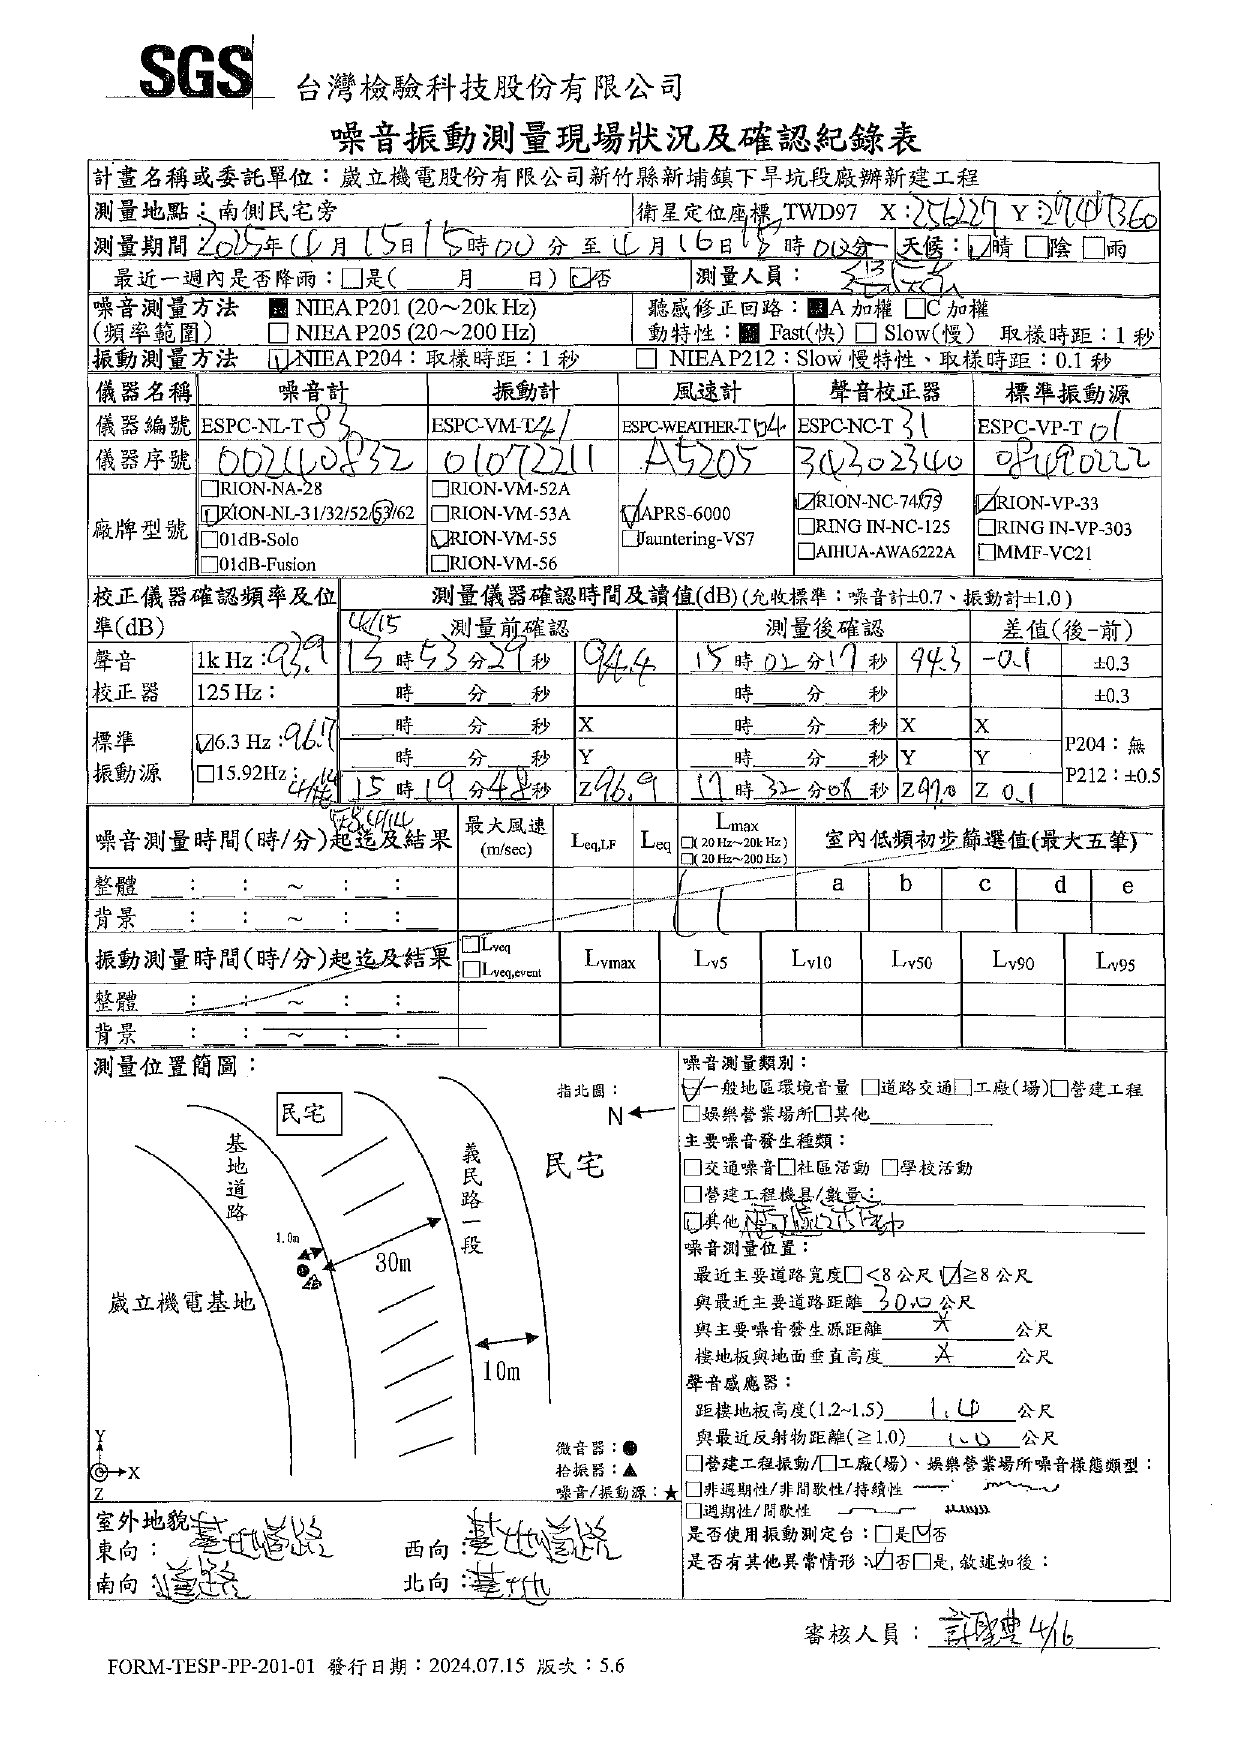 SGS 台灣檢驗科技股份有限公司
噪音振動測量現場狀況及確認紀錄表
計畫名稱或委託單位：崴立機電股份有限公司新竹縣新埔鎮下旱坑段廠辦新建工程
測量地點：南側民宅旁 衛星定位座標，TWD97 X：256227 Y：2747360
測量期間 2025年4月15日15時00分至4月16日15時00分 天候：☑晴 □陰 □雨
最近一週內是否降雨：□是( 月 日) ☑否 測量人員：
噪音測量方法 ■ NIEA P201 (20～20k Hz) 聽感修正回路：■A 加權 □C 加權
(頻率範圍) □ NIEA P205 (20～200 Hz) 動特性：■ Fast(快) □ Slow(慢) 取樣時距：1 秒
振動測量方法 ☑NIEA P204：取樣時距：1 秒 □ NIEA P212：Slow 慢特性、取樣時距：0.1 秒
儀器名稱 噪音計 振動計 風速計 聲音校正器 標準振動源
儀器編號 ESPC-NL-T 83 ESPC-VM-T41 ESPC-WEATHER-T04 ESPC-NC-T 31 ESPC-VP-T 01
儀器序號 00240832 01072211 A5205 34302340 08490222
廠牌型號
□RION-NA-28 □RION-VM-52A
☑RION-NL-31/32/52/53/62 □RION-VM-53A ☑APRS-6000 ☑RION-NC-74/75 ☑RION-VP-33
□01dB-Solo ☑RION-VM-55 □Jauntering-VS7 □RING IN-NC-125 □RING IN-VP-303
□01dB-Fusion □RION-VM-56 □AIHUA-AWA6222A □MMF-VC21
校正儀器確認頻率及位準(dB) 測量儀器確認時間及讀值(dB) (允收標準：噪音計±0.7、振動計±1.0)
4/15 測量前確認 測量後確認 差值(後－前)
聲音校正器 1k Hz：93.9 13時53分29秒 94.4 15時02分17秒 94.3 -0.1 ±0.3
125 Hz： 時 分 秒 時 分 秒 ±0.3
標準振動源 ☑6.3 Hz：96.7 時 分 秒 X 時 分 秒 X X P204：無
時 分 秒 Y 時 分 秒 Y Y P212：±0.5
□15.92Hz： 4/14 15時19分48秒 Z96.9 17時32分08秒 Z97.0 Z 0.1
噪音測量時間(時/分)起迄及結果 最大風速(m/sec) Leq,LF Leq Lmax □( 20 Hz～20k Hz) □( 20 Hz～200 Hz) 室內低頻初步篩選值(最大五筆)
整體 ： ： ～ ： ： a b c d e
背景 ： ： ～ ： ：
振動測量時間(時/分)起迄及結果 □Lveq □Lveq,event Lvmax Lv5 Lv10 Lv50 Lv90 Lv95
整體 ： ： ～ ： ：
背景 ： ： ～ ： ：
測量位置簡圖：
指北圖：
N
民宅
基地道路
義民路一段
民宅
1.0m
30m
崴立機電基地
10m
Y
X
Z
微音器：●
拾振器：▲
噪音/振動源：★
室外地貌
東向：基地道路 西向：基地道路
南向：道路 北向：基地
噪音測量類別：
☑一般地區環境音量 □道路交通□工廠(場)□營建工程
□娛樂營業場所□其他
主要噪音發生種類：
□交通噪音□社區活動 □學校活動
□營建工程機具/數量：
☑其他
噪音測量位置：
最近主要道路寬度□<8 公尺 ☑≧8 公尺
與最近主要道路距離 30.0 公尺
與主要噪音發生源距離 公尺
樓地板與地面垂直高度 公尺
聲音感應器：
距樓地板高度(1.2~1.5) 1.4 公尺
與最近反射物距離(≧1.0) 1.0 公尺
□營建工程振動/□工廠(場)、娛樂營業場所噪音樣態類型：
□非週期性/非間歇性/持續性
□週期性/間歇性
是否使用振動測定台：□是☑否
是否有其他異常情形：☑否□是,敘述如後：
審核人員： 4/16
FORM-TESP-PP-201-01 發行日期：2024.07.15 版次：5.6